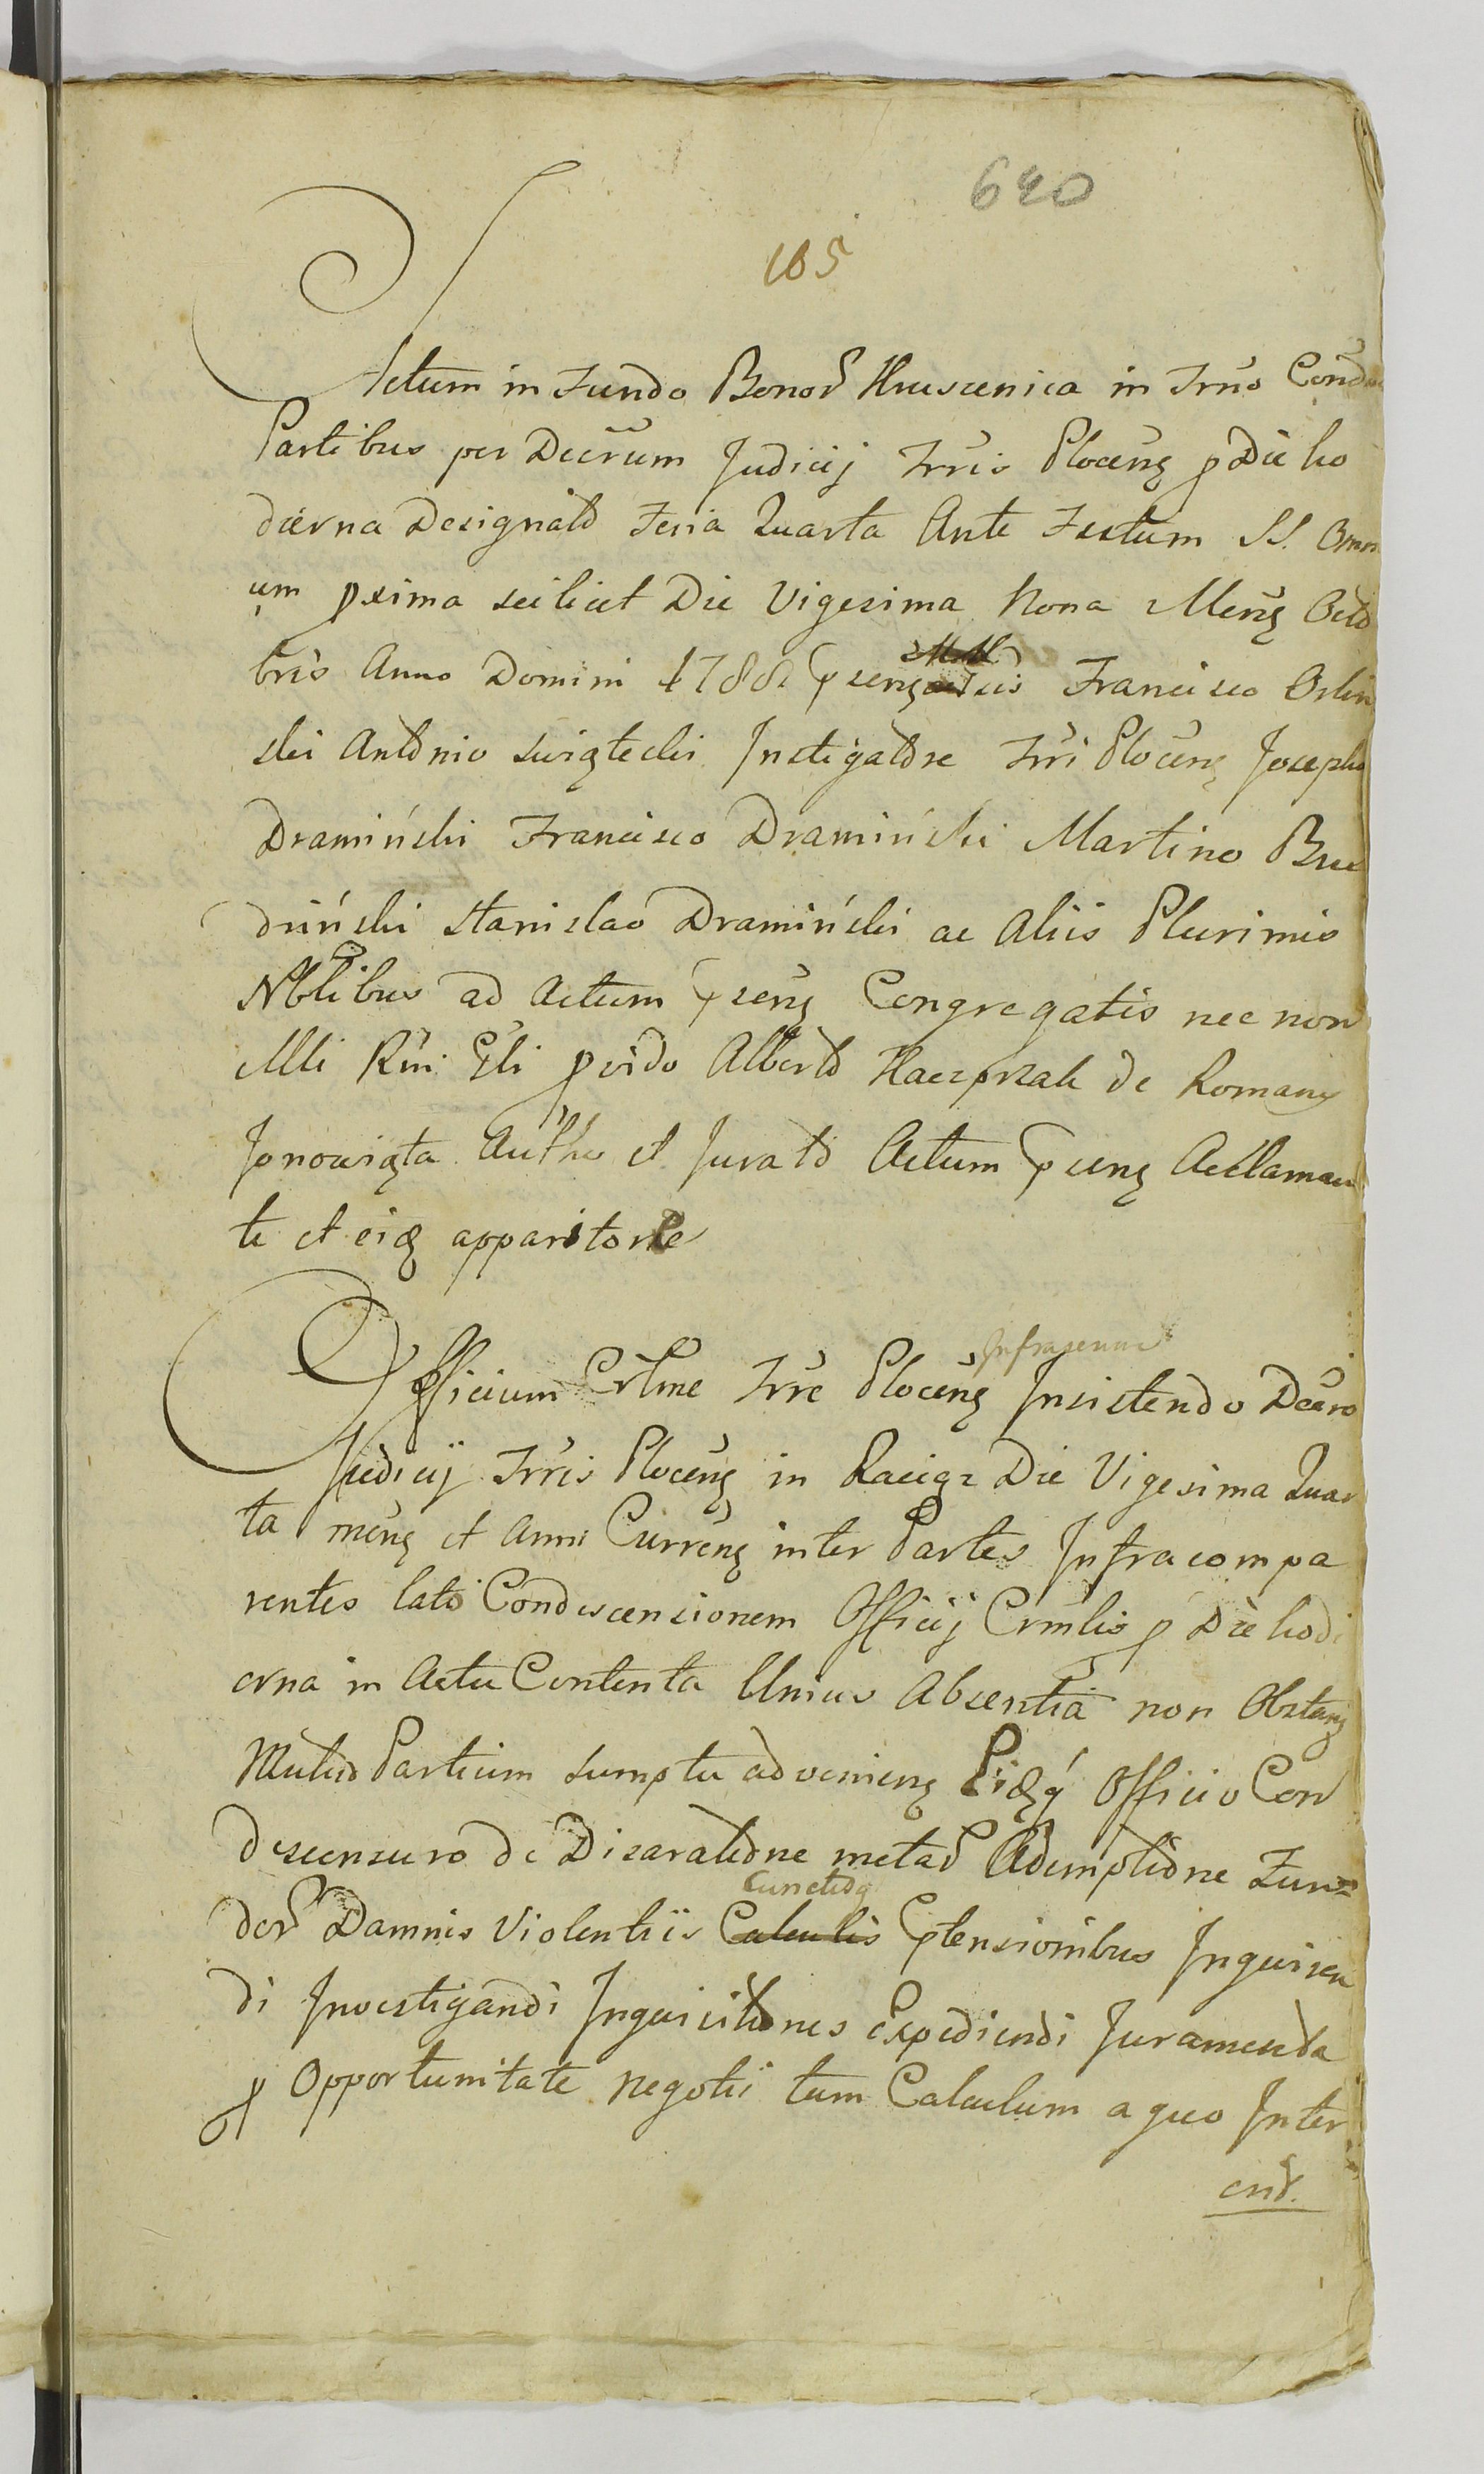 640
105
Actum in Fundo Bonor Kruscenica in Trno Cond
Partibus per Decrum Judicij Trris Plocenę p Die ho
dierna Designato Feria Quarta Ante Festum SS. Omn
um pxima scilicet Die Vigesima Nona Mensę Octo
bris Anno Domini 1788 psenę Francisco Orlin
ski Antonio Swięcki Instigatore Trri Plocenę Josepho
Dramiński Francisco Dramiński Martino Bu
dziński Stanislao Dramiński ac Aliis Plurimis
Nblibus ad Actum psenę Congregatis nec non
Mli Rni Gli pvido Alberto Kacprzak de Romany
Janowięta Autho et Jurato Actum psenę Acclaman
te et eidę apparitore
Infrascrine
Officium Crlme Trre Plocenę Insistendo Decro
Judicij Trris Plocenę in Raciąz Die Vigesima Quar
ta Mensę et Anni Currenę inter Partes Infracompa
rentes lato Condescensionem Officij Crmlis p Die hodi
erna in Actu Contenta Unius Absentia non Obstanę
Mutuo Partium Sumptu advenienę Eidęq Officio Con
descensuro de Disaratione metar Ademptione Fun=
Cunctisq
dor Damnis Violentiis Calculis ptensionibus Inquiren
di Investigandi Inquisitiones Expediendi Juramenta
p Opportunitate negotii tum Calculum a quo Inter
end.